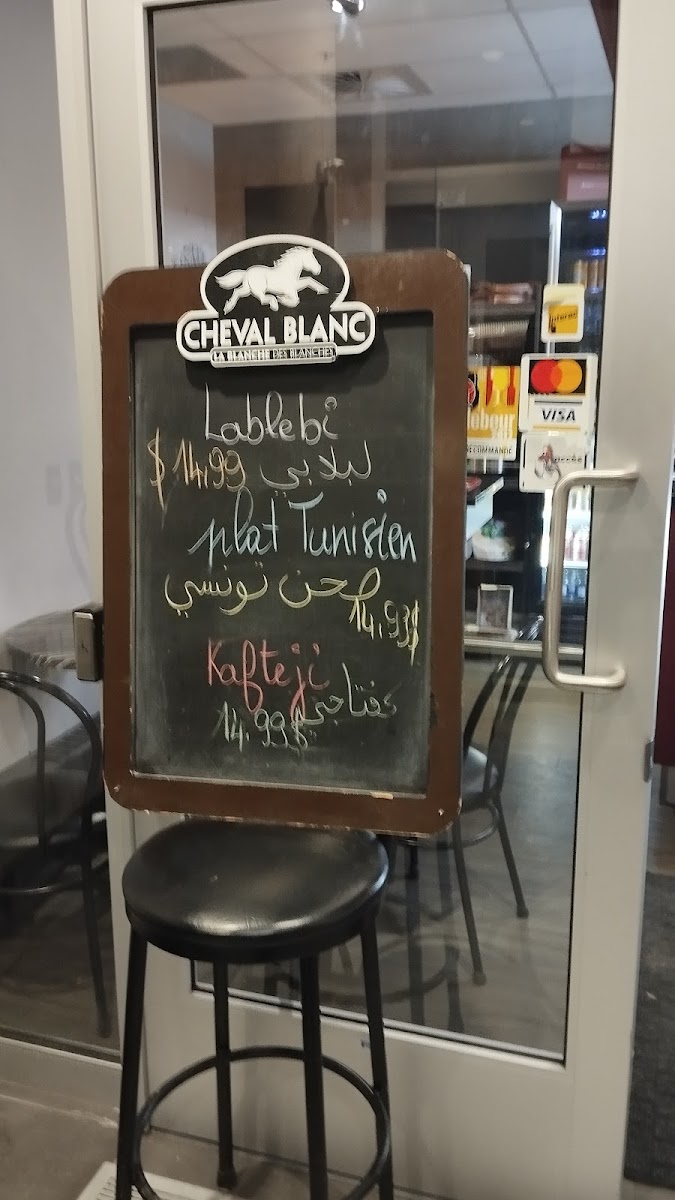 CHEVAL BLANC
LA BLANCHE DES BLANCHES
Lablebi
$ 14,99 لبلابي
plat Tunisien
صحن تونسي
14.99$
Kafteji
كفتاجي
14.99$
Interac
VISA
debour
RECOMMANDÉ